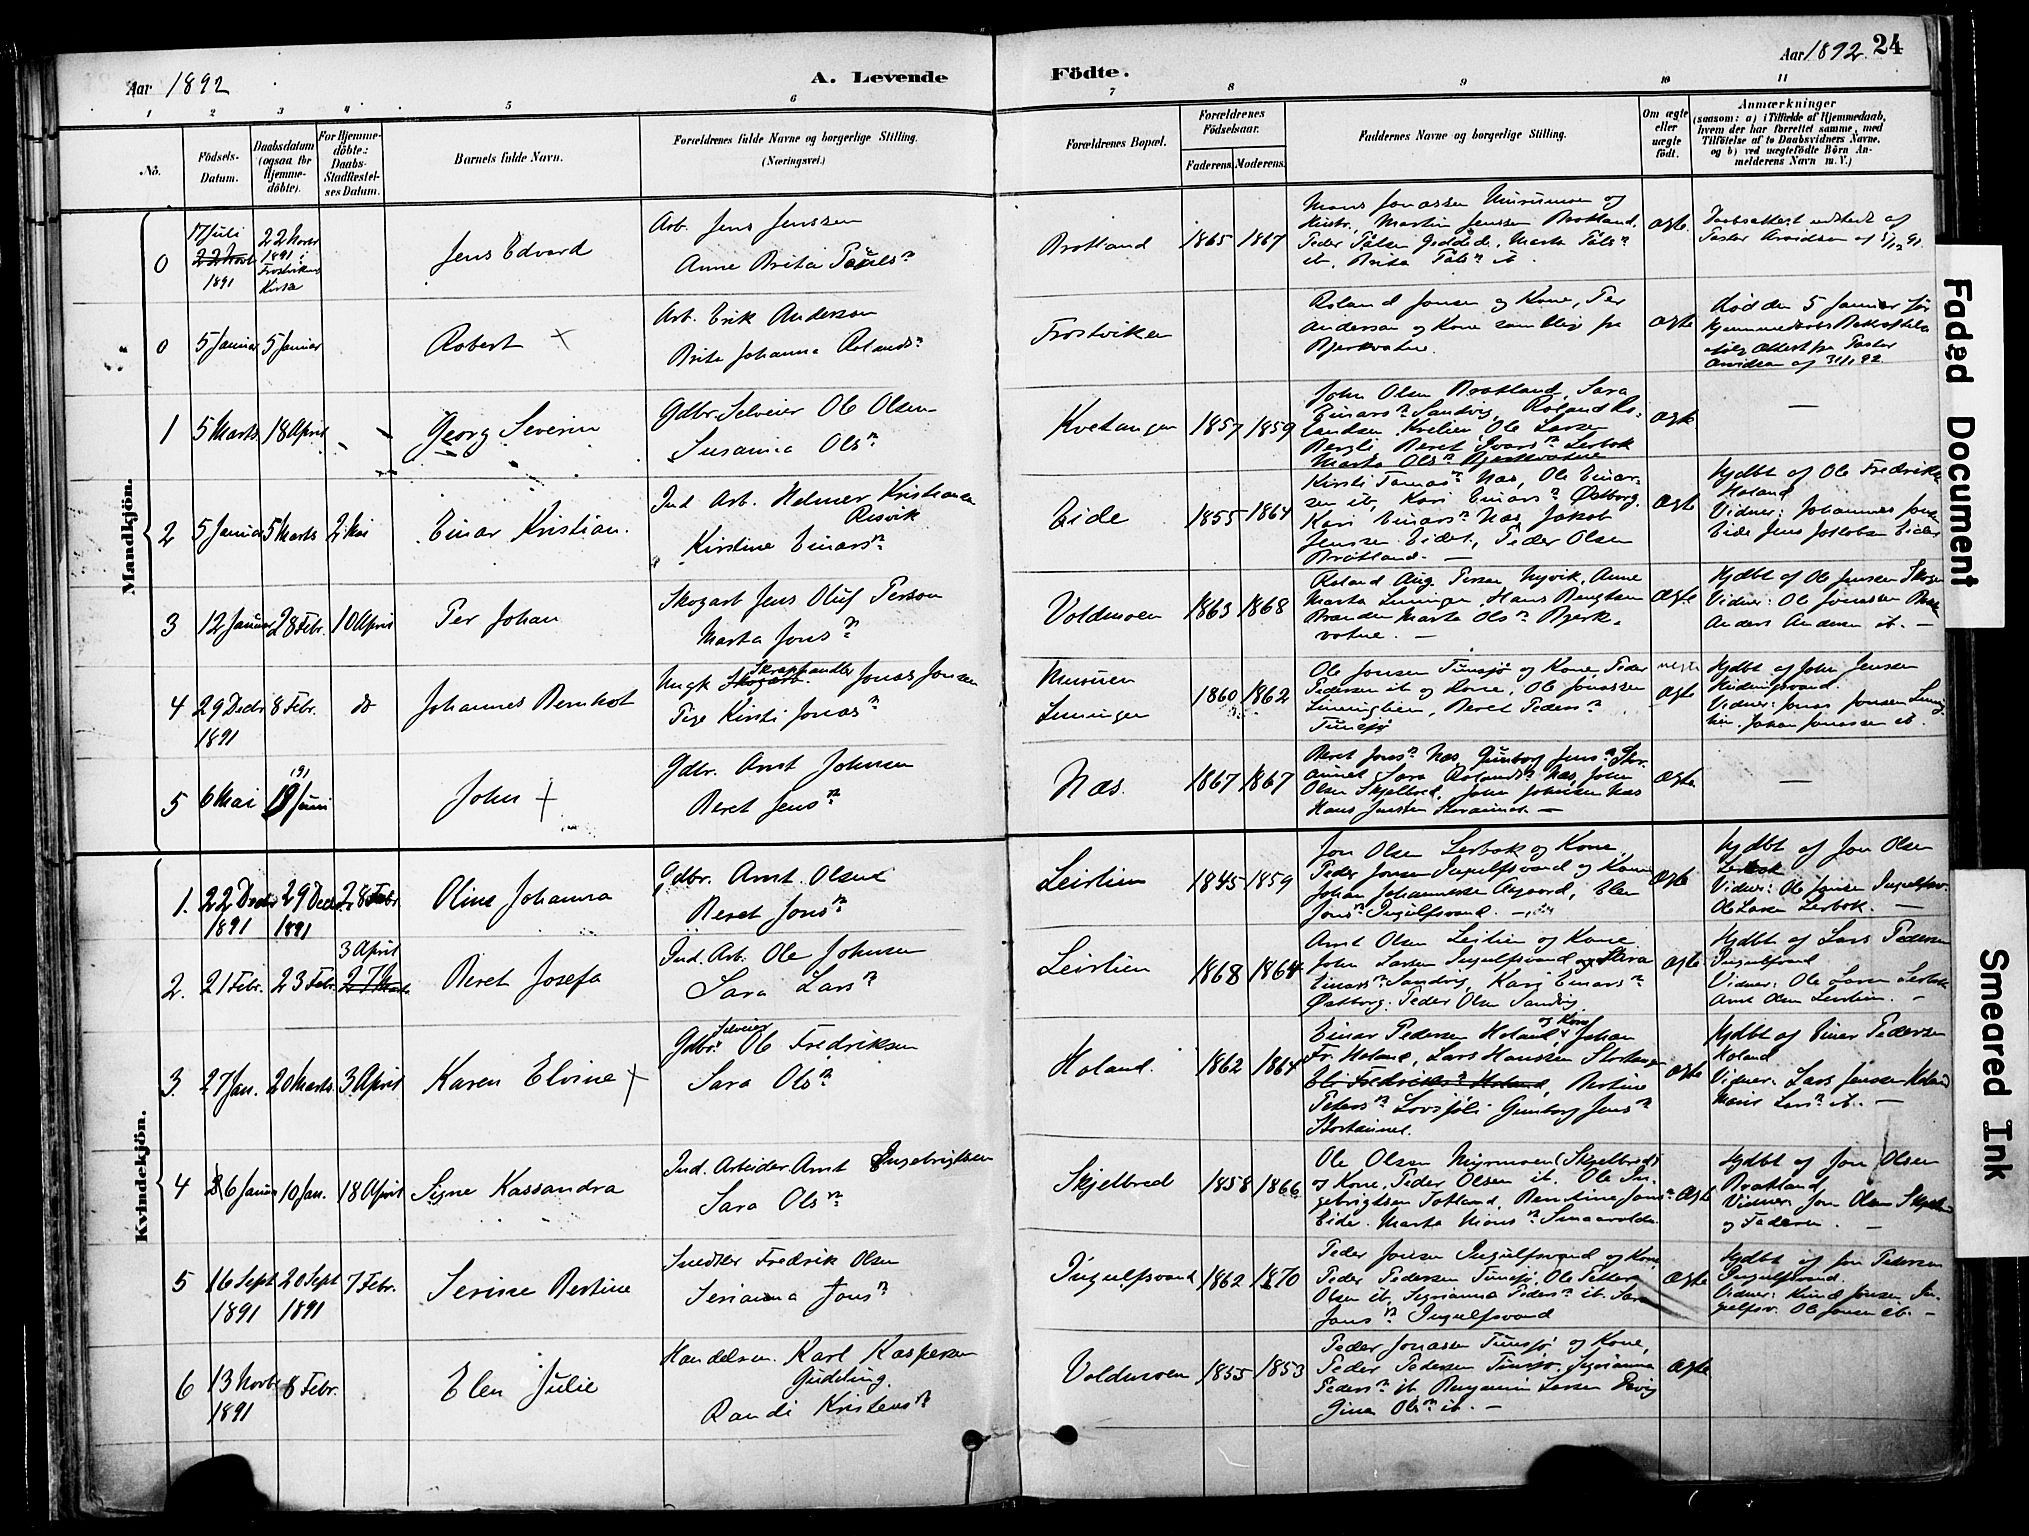 Aar 1892
A. Levende
Födte.
Aar 1892. 24
1 2 3 4 5 6 7 8 9 10 11
No.
Födsels-
Datum.
Daabsdatum
(ogsaa for
Hjemme-
döbte).
For Hjemme-
döbte:
Daabs-
Stadfæstel-
ses Datum.
Barnets fulde Navn.
Forældrenes fulde Navne og borgerlige Stilling.
(Næringsvei.)
Forældrenes Bopæl.
Forældrenes
Födselsaar.
Faderens. Moderens.
Faddernes Navne og borgerlige Stilling.
Om ægte
eller
uægte
födt.
Anmærkninger
(saasom: a) i Tilfælde af Hjemmedaab,
hvem der har forrettet samme, med
Tilföielse af to Daabsvidners Navne,
og b) ved uægtefödte Börn An-
melderens Navn m. V.)
Mandkjön.
0
17 Juli
22 Novb
1891
22 Novbr
1891 i
Frostvikens
Kirke
Jens Edvard
Arb. Jens Jenssen
Anne Brita Pauls n
Brotland
1865 1867
Martin Jenssen Brotland,
Peder Pålsen Gedded, Marta Påls n
it, Brita Påls n it.
ægte
Daabsattest udstedt af
Pastor Arvidson af 5/12 91.
0
5 Januar 5 Januar
Robert +
Arb. Erik Anderson
Brita Johanna Rolands n
Frostviken
Roland Jonsen og Kone, Per
Anderson og Kone samtlige fra
Bjerkvatne.
ægte
Död den 5 Januar för
ifölg Attest fra Pastor
Arvidson af 31/1 92
1
5 Marts 18 April
Georg Severin
Gdbr. Selveier Ole Olsen
Susanna Ols n
Kvetangen
1857 1859
John Olsen Brotland, Sara
Einars n Sandvig, Roland Ro-
landsen Kvelien, Ole Larsen
Bergli, Beret Ivars n Lerbak
Marta Ols n Bjerkvatne
ægte
—
2
5 Januar 5 Marts 2 Mai
Einar Kristian.
Ind. Arb. Helmer Kristiansen
Risvik
Kirstine Einars n
Eide
1855 1864
Kirsti Tomas n Næs, Ole Einar-
sen it, Kari Einars n Östborg.
Kari Einars n Næs, Jakob
Jenssen Eidet, Peder Olsen
Brotland. —
Ægte
Hjdbt af Ole Fredriks
Holand
Vidner: Johannes Jons
Eide Jens Jakobsen Eide
3
12 Januar 28 Febr. 10 April
Per Johan
Skogarb Jens Oluf Person
Marta Jons n
Voldmoen
1863 1868
Roland Aug. Person Nyvik, Anne
Marta Linningen, Hans Bengtsen
Brænden Marta Ols n Bjerk-
vatne. —
Ægte
Hjdbt af Ole Jenssen Skogen
Vidner: Ole Jonassen
Anders Andersen it. —
4
29 Decbr
1891
8 Febr. do
Johannes Bernhof
Ungk Skogarb. Skraphandler Jonas Jonsen
Pige Kirsti Jonas n
Murumoen
Linningen
1860 1862
Ole Jonsen Tunsjø og Kone, Peder
Pedersen it og Kone, Ole Jonassen
Linninglien, Beret Peders n
Tunsjø
uægte
Ægte
Hjdbt af John Jenssen
Vidner: Jonas Jonsen Linning-
lien. Johan Jonassen it.
5
6 Mai 19 Juni
John +
Gdbr. Arnt Johnsen
Beret Jens n
Næs.
1867 1867
Beret Jons n Næs, Gunborg Jens n
Sara Rolands n Næs, John
Olsen Skjelbred, John Johnsen Næs
Hans Jensen —
Ægte
—
Kvindekjön.
1.
22 Decbr
1891
29 Decbr
1891
28 Febr
Oline Johanna
Gdbr. Arnt Olsen
Beret Jons n
Leirlien
1845 1859
Jon Olsen Lerbak og Kone
Peder Jonsen Ingulfsvand og Kone
Johan Johannesen Aagaard, Elen
Jons n Ingulfsvand. —
Ægte
Hjdbt af Jon Olsen
Lerbak
Vidner: Ole Jonsen Ingulfsv.
Ole Larsen Lerbak. —
2.
21 Febr. 23 Febr.
3 April
27 Marts
Beret Josefa
Ind. Arb. Ole Johnsen
Sara Lars n
Leirlien
1868 1864
Arnt Olsen Leirlien og Kone
John Larsen Ingulfsvand og Sara
Einars n Sandvig, Kari Einars n
Östborg. Peder Olsen Sandvig
ægte
Hjdbt af Lars Pedersen
Ingulfsvand
Vidner: Ole Larsen Lerbak
Arnt Olsen Leirlien. —
3.
27 Jan. 20 Marts 3 April
Karen Elvine +
Gdbr. Selveier Ole Fredriksen
Sara Ols n
Holand.
1862 1864
Einar Pedersen Holand og Kone, Johan
Fr. Holand, Lars Hanssen Stortangen
Eli Fredriks n Holand, Bertine
Peters n Lovsjøli Gunborg Jens n
Ægte
Hjdbt af Einar Pedersen
Holand
Vidner: Lars Jenssen Holand
Lars n it. —
4
6 Januar 10 Jan. 18 April
Signe Kassandra
Ind. Arbeider Arnt Ingebrigtsen
Sara Ols n
Skjelbred
1858 1866
Ole Olsen Myrmoen (Skjelbred)
og Kone, Peder Olsen it. Ole In-
gebrigtsen Totland, Berntine Jons n
Eide. Marta Mons n Smaavolden
Ægte
Hjdbt af Jon Olsen
Brotland
Vidner: Jon Olsen Skjelbred
og Faderen. —
5
16 Sept
1891
20 Sept
1891
7 Febr.
Serine Bertine
Inderst Fredrik Olsen
Serianna Jons n
Ingulfsvand
1862 1870
Peder Jonsen Ingulfsvand og Kone
Peder Pedersen Tunsjø, Ole Petter
Olsen it, Sigrianna Peders n it. Sara
Jons n Ingulfsvand
Ægte
Hjdbt af Jon Pedersen
Ingulfsvand.
Vidner: Knud Jonsen In-
gulfsv. Ole Jonsen it. —
6
13 Novbr
1891
8 Febr.
Elen Julie
Handelsm. Karl Kaspersen
Gudding
Randi Kristens n
Voldmoen
1855 1853
Peder Jonassen Tunsjø og Kone,
Peder Pedersen Tunsjø. Sigrianna
Peders n it Benjamin Larsen Devig
Gina Ols n it. —
Ægte
Faded Document
Smeared Ink